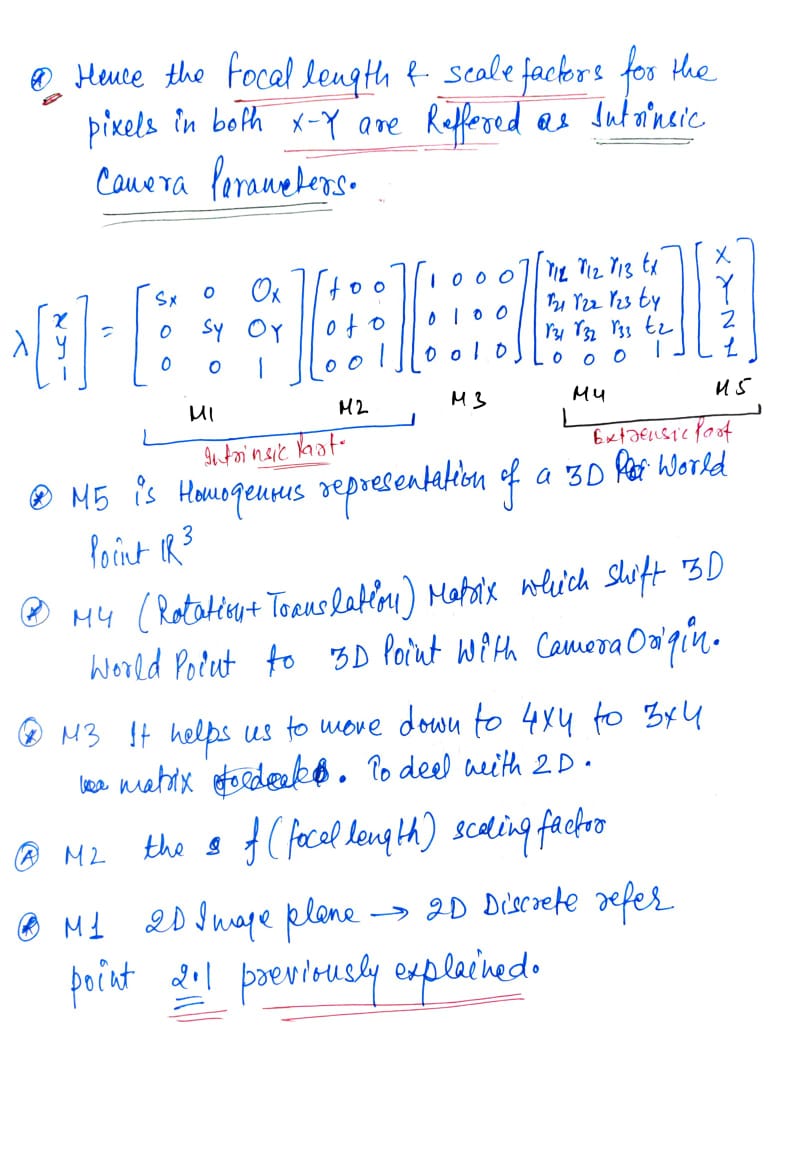 Hence the focal length & scale factors for the
pixels in both X-Y are Reffered as Intrinsic
Camera Parameters.
λ [x y 1] = [Sx 0 Ox; 0 Sy OY; 0 0 1] [f 0 0; 0 f 0; 0 0 1] [1 0 0 0; 0 1 0 0; 0 0 1 0] [r12 r12 r13 tx; r21 r22 r23 ty; r31 r32 r33 tz; 0 0 0 1] [X Y Z 1]
M1 M2 M3 M4 M5
Intrinsic Part. Extrensic Part
M5 is Homogenous representation of a 3D World
Point IR³
M4 (Rotation+Translation) Matrix which shift 3D
World Point to 3D Point With Camera Origin.
M3 It helps us to move down to 4x4 to 3x4
matrix. To deel with 2D.
M2 the f (focel length) scaling factor
M1 2D Image plane → 2D Discrete refer
point 2.1 previously explained.